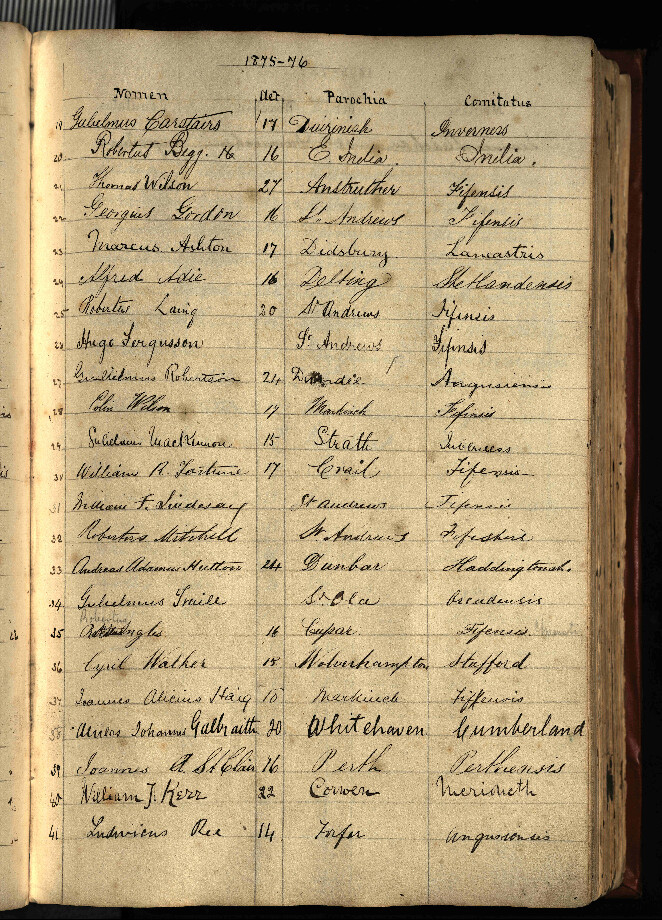 1875-76
Nomen Aet Parochia Comitatus
19 Gulielmus Carstairs 17 Duirinish Inverness
20 Robertus Begg. 16 E. India. India.
21 Thomas Wilson 27 Anstruther Fifensis
22 Georgius Gordon 16 St. Andrews Fifensis
23 Marcus Ashton 17 Didsbury Lancastris
24 Alfred Adie 16 Delting Shetlandensis
25 Robertus Laing 20 St Andrews Fifensis
26 Hugo Fergusson St. Andrews Fifensis
27 Robertson 24 Dundee
28 Colin Wilson 17 Markinch Fifensis
29 Gulielmus MacKinnon 15 Strath Inverness
30 William R. Fortune 17 Crail Fifensis
31 William F. Lindesay St Andrews Fifensis
32 Robertus Mitchell St Andrews Fifeshire
33 Andreas Adamus Hutton 24 Dunbar Haddingtonsh.
34 Gulielmus Traill St Ola Orcadensis
Robertus
35 Inglis 16 Cupar Fifensis
36 Cyril Walker 15 Wolverhampton Stafford
37 Joannes Haig 15 Markinch
38 Johannes Galbraith 20 Whitehaven Cumberland
39 Joannes A. St Clair 16 Perth Perthensis
40 William J. Kerr 22 Corwen Merioneth
41 Ludovicus Ree 14 Forfar Angusensis